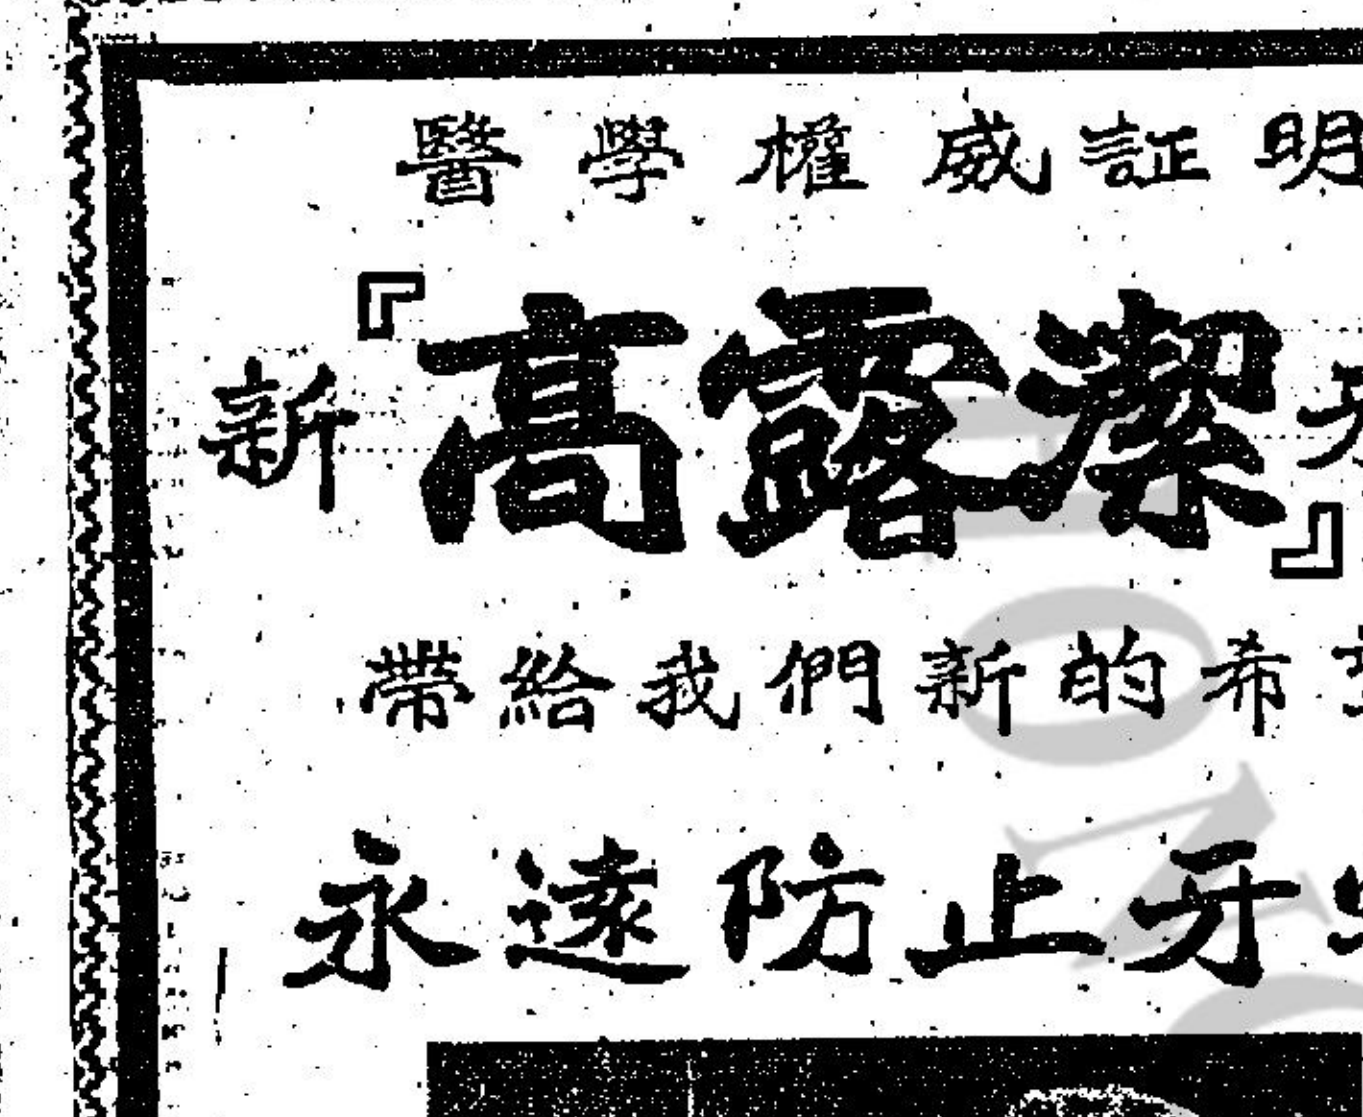 醫學權威証明
新『高露潔』牙
帶給我們新的希
永遠防止牙